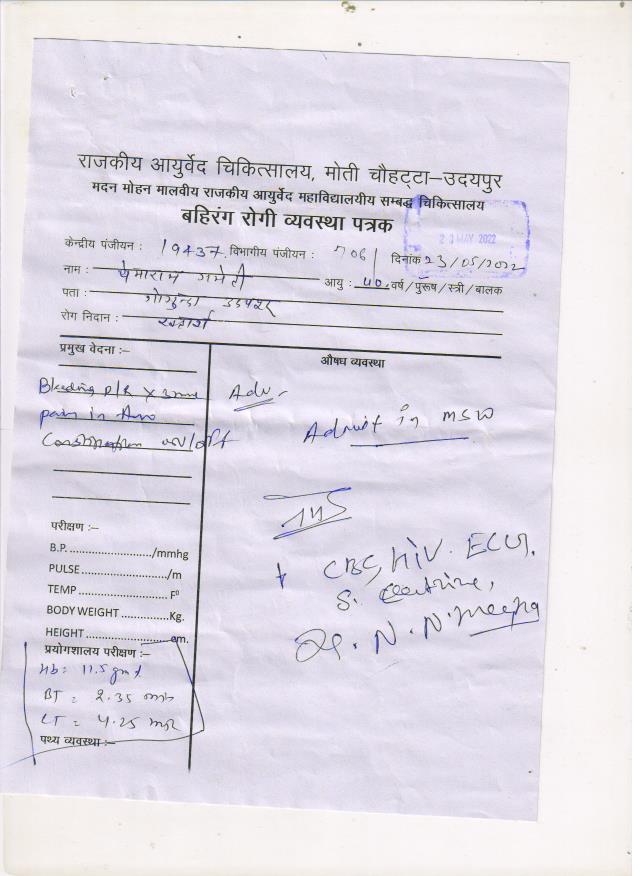 राजकीय आयुर्वेद चिकित्सालय, मोती चौहट्टा–उदयपुर
मदन मोहन मालवीय राजकीय आयुर्वेद महाविद्यालयीय सम्बद्ध चिकित्सालय
बहिरंग रोगी व्यवस्था पत्रक
23 MAY 2022
केन्द्रीय पंजीयन : 19437 विभागीय पंजीयन : 706 दिनांक 23/05/2022
नाम : गमेती आयु : 40 वर्ष/पुरूष/स्त्री/बालक
पता : गोगुन्दा उदयपुर
रोग निदान :
प्रमुख वेदना :–
औषध व्यवस्था
Bleeding P/R x
pain in
Adv -
Admit in MSW
परीक्षण :–
B.P. ........................../mmhg
PULSE ............................/m
TEMP ............................. F⁰
BODY WEIGHT ................Kg.
HEIGHT ............................cm.
Inv
CBC, HIV. ECG,
S.
N. N. Meena
प्रयोगशालय परीक्षण :–
Hb = 11.5 gm
BT = 2.35
CT = 4.25
पथ्य व्यवस्था :–